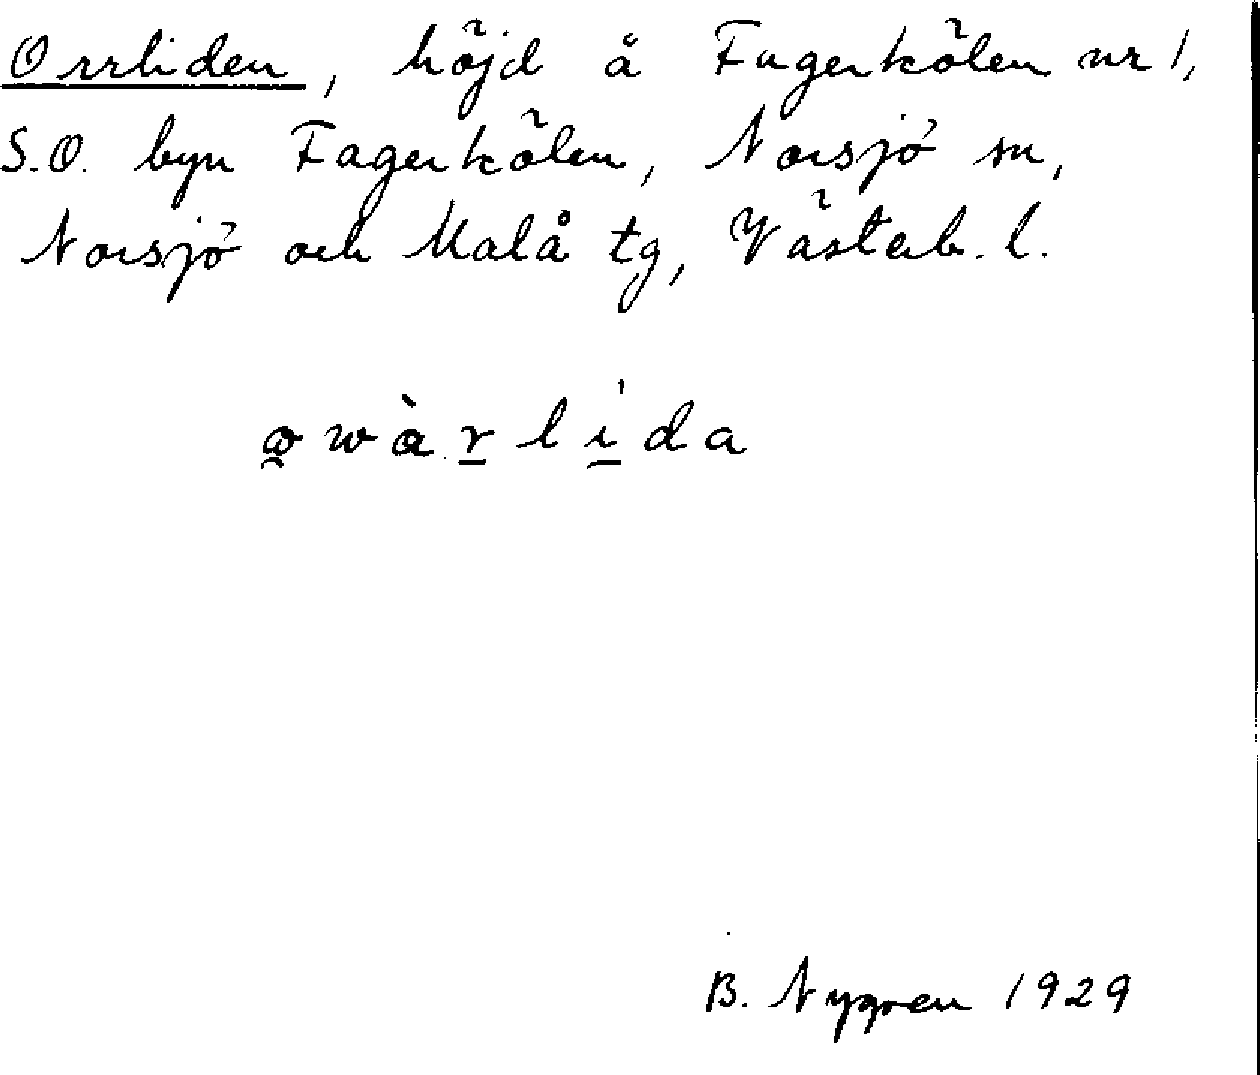 Orrliden, höjd å Fagerkölen nr 1,
S.O. byn Fagerkölen, Norsjö sn,
Norsjö och Malå tg, Västerb. l.
B. Nygren 1929